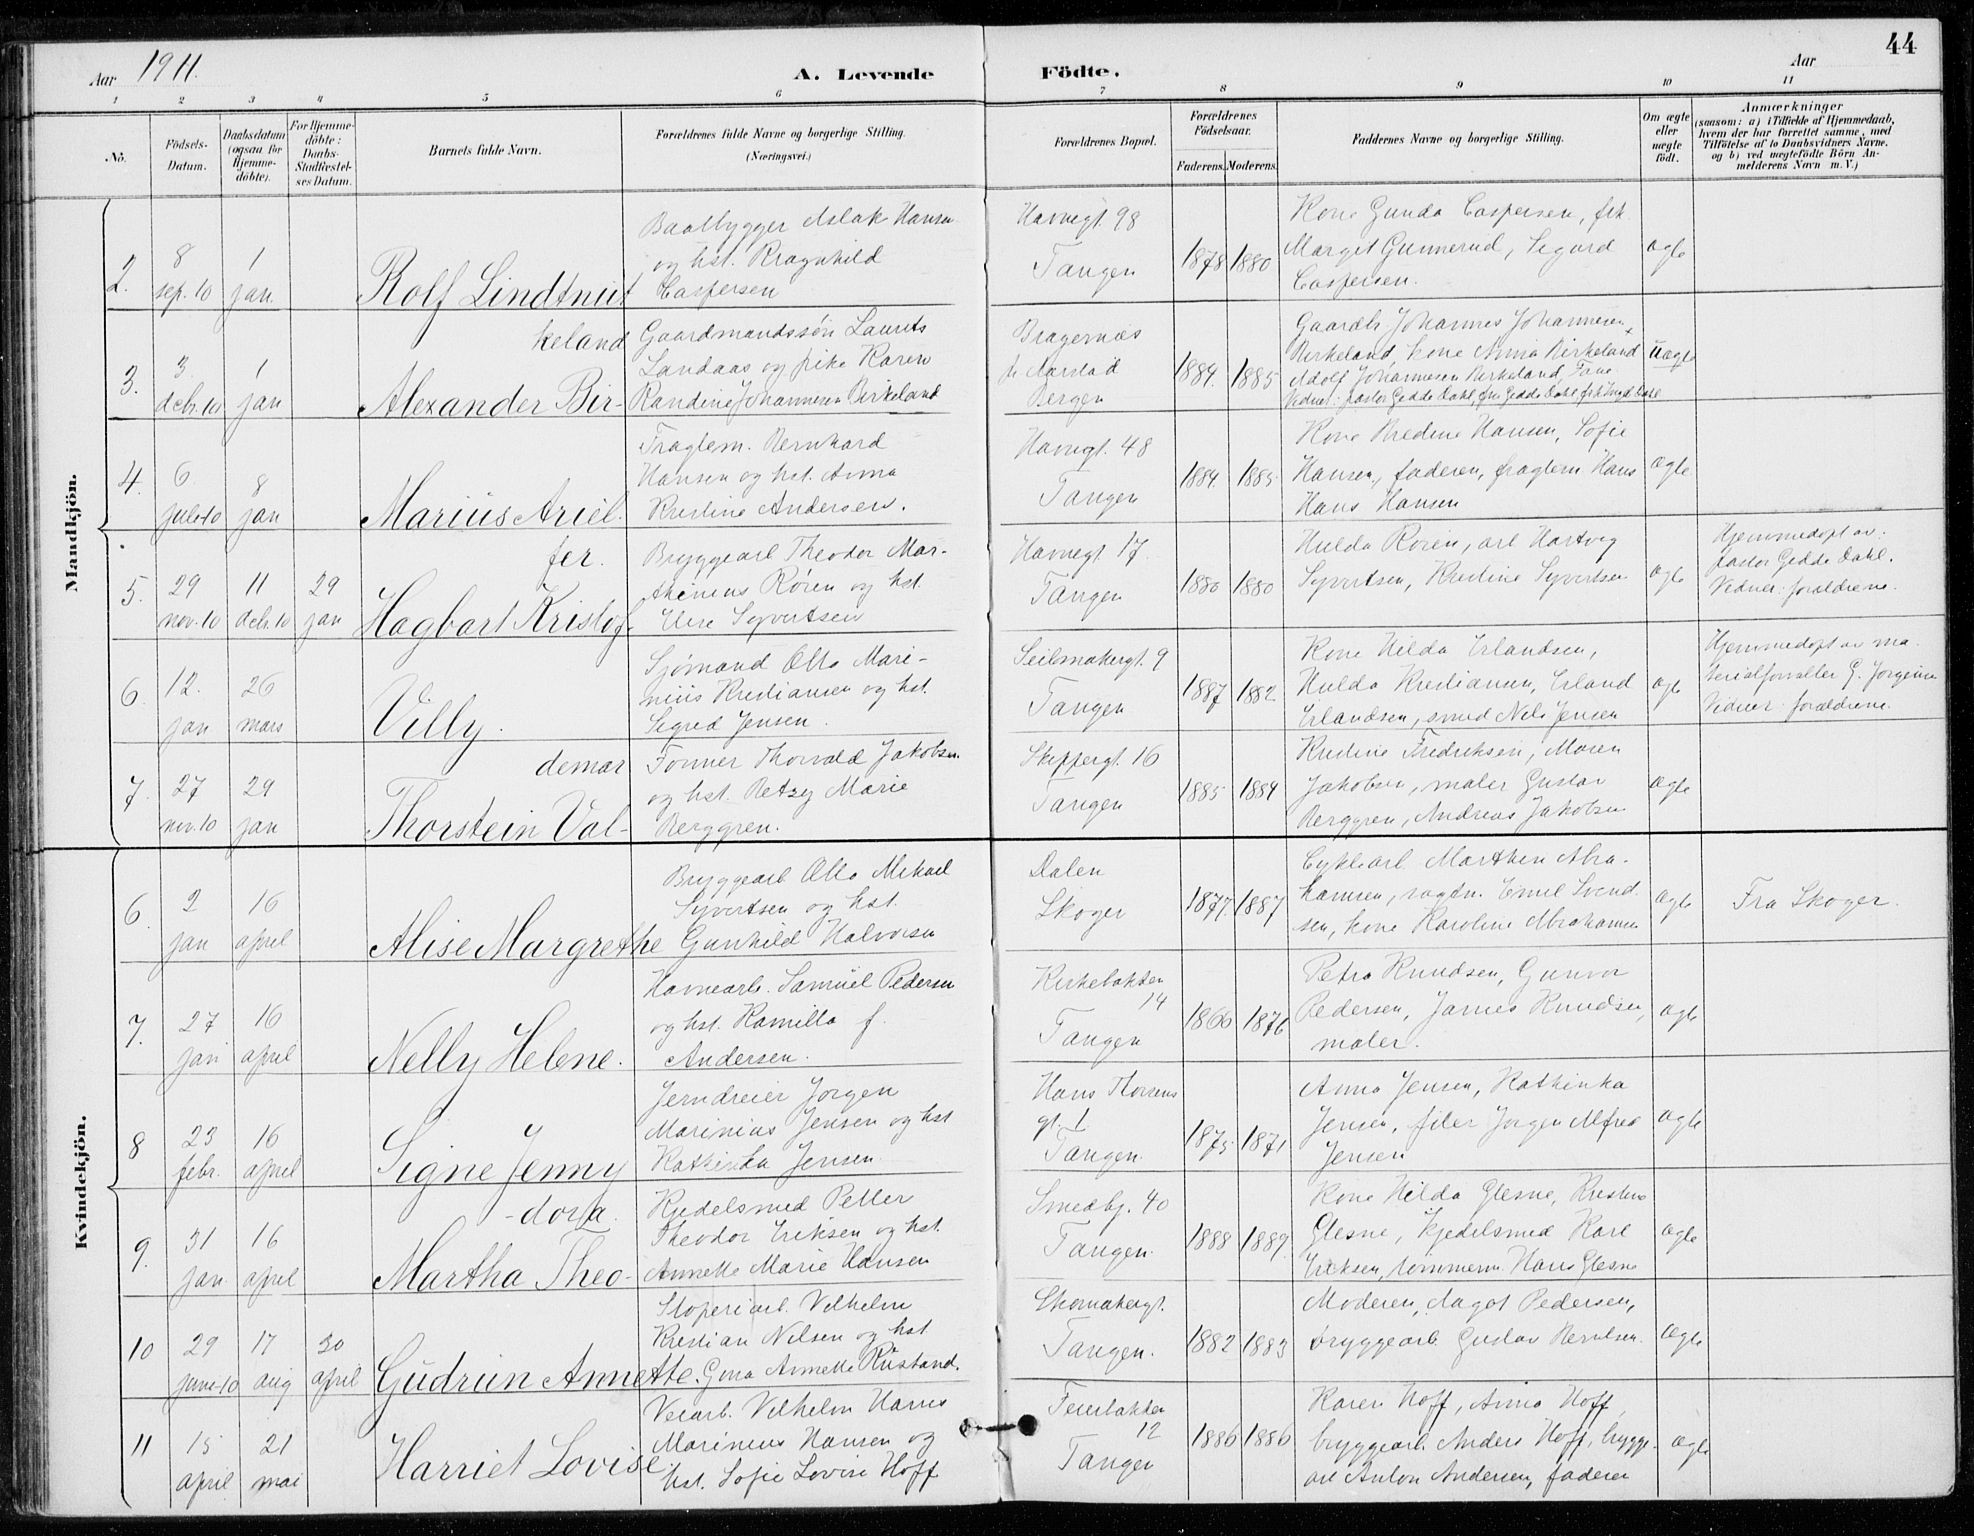 44
Aar 1911.
A. Levende Födte.
Aar
1 2 3 4 5 6 7 8 9 10 11
No.
Födsels-
Datum.
Daabsdatum
(ogsaa for
Hjemme-
döbte).
For Hjemme-
döbte:
Daabs-
Stadfæstel-
ses Datum.
Barnets fulde Navn.
Forældrenes fulde Navne og borgerlige Stilling.
(Næringsvei.)
Forældrenes Bopæl.
Forældrenes
Födselsaar.
Faderens. Moderens.
Faddernes Navne og borgerlige Stilling.
Om ægte
eller
uægte
født.
Anmærkninger
(saasom: a) i Tilfælde af Hjemmedaab,
hvem der har forrettet samme, med
Tilföielse af to Daabsvidners Navne,
og b) ved uægtefödte Börn An-
melderens Navn m. V.)
Mandkjön.
2.
8
sep. 10
1
jan.
Rolf Lindtnut
Baatbygger Aslak Hansen
og hst. Kragnhild
Caspersen
Havnegt. 98
Tangen
1878 1880
Kone Gunda Caspersen, frk.
Margit Gunnerud, Segard
Caspersen.
ægte
3.
3
debr. 10
1
jan
keland
Alexander Bir-
Gaardmandssøn Laurits
Landaas og pike Karen
Randine Johannesen Birkeland
Bragernæs
fr. Aarstad
Bergen
1884. 1885
Gaardb. Johannes Johannesen
Birkeland, kone Anna Birkeland
Adolf Johannesen Birkeland, Fane
Vidner: pastor Gedde Dahl, fru Gedde Dahl,
uægte
4.
6
jule 10
8
jan
Marius Ariel.
Fraglem. Bernhard
Hansen og hst. Anna
Kristine Andersen.
Havnegt. 48
Tangen
1884. 1885.
Kone Bredine Hansen, Sofie
Hansen, faderen, fraglem. Hans
Hans Hansen
ægte
5.
29
nov. 10
11
debr. 10
29
jan
fer.
Hagbart Kristof-
Bryggearb Theodor Mar-
thinius Røren og hst.
Else Syvertsen
Havnegt 17.
Tangen
1880 1880
Hulda Røren, arb Hartvig
Syvertsen, Kristine Syvertsen
ægte
Hjemmedøpt av:
pastor Gedde Dahl.
Vidner: forældrene.
6.
12.
jan
26
mars
Villy.
Sjømand Otto Mari-
nius Kristiansen og hst.
Sigrid Jensen.
Seilmakergt. 9
Tangen
1887 1882
Kone Hilda Erlandsen,
Hulda Kristiansen, Erland
Erlandsen, smed Nils Jensen
ægte
Hjemmedøpt av ma-
terialforvalter G. Jørgensen
Vidner: forældrene.
7.
27
nov. 10
29
jan
demar
Thorstein Val-
Former Thorvald Jakobsen
og hst. Betzy Marie
Berggren.
Skippergt. 16
Tangen
1885 1884
Kristine Fredriksen, Maren
Jakobsen, maler Gustav
Berggren, Andreas Jakobsen
ægte
Kvindekjön.
6.
2
jan
16
april
Alise Margrethe
Bryggearb. Otto Mikael
Syvertsen og hst.
Gunhild Halvorsen
Dalen
Skoger
1877. 1887
Cyklearb Marthin Abra-
hamsen, sagtm. Emil Svend-
sen, kone Karoline Abrahamsen
ægte
Fra Skoger.
7.
27
jan
16
april
Nelly Helene.
Havnearb. Samuel Pedersen
og hst. Kamilla f.
Andersen.
Kirkebakken
14
Tangen
1866 1876
Petra Knudsen, Gunvor
Pedersen, James Knudsen,
maler.
ægte
8
23
febr.
16
april
Signe Jenny
Jerndreier Jørgen
Marinius Jensen og hst
Kathinka Jensen.
Hans Thorsens
gt. 1
Tangen.
1875 1871
Anna Jensen, Kathinka
Jensen, filer Jørgen Alfred
Jensen
ægte
9.
31
jan
16
april
-dora.
Martha Theo-
Kjedelsmed Petter
Theodor Eriksen og hst.
Annette Marie Hansen
Smedbg. 40
Tangen.
1888 1889.
Kone Hilda Glesne, Kristine
Glesne, kjedelsmed Karl
Eriksen, tømmerm. Hans Glesne
ægte
10
29
juni 10
17
aug
30
april
Gudrun Annette.
Støperiarb. Vilhelm
Kristian Nilsen og hst.
Gina Annette Rustand.
Skomakergt.
Tangen.
1882 1883
Moderen, Aagot Pedersen,
bryggearb. Gustav Berntsen.
ægte
11
15
april
21
mai
Harriet Lovise
Veiarb. Vilhelm Hans
Marinius Hansen og
hst. Sofie Lovise Hoff
Feierbakken
12
Tangen
1886 1886
Karen Hoff, Anna Hoff,
bryggearb. Anders Hoff, brygge-
arb Anton Andersen, faderen
ægte